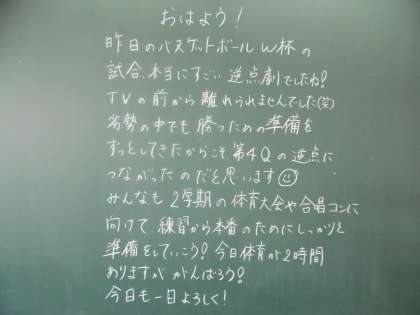 おはよう！
昨日のバスケットボールW杯の
試合、本当にすごい逆点劇でしたね！
TVの前から離れられませんでした(笑)
劣勢の中でも勝つための準備を
ずっとしてきたからこそ、第4Qの逆点に
つながったのだと思います
みんなも2学期の体育大会や合唱コンに
向けて、練習から本番のためにしっかりと
準備をしていこう！今日体育が2時間
ありますががんばろう！
今日も一日よろしく！